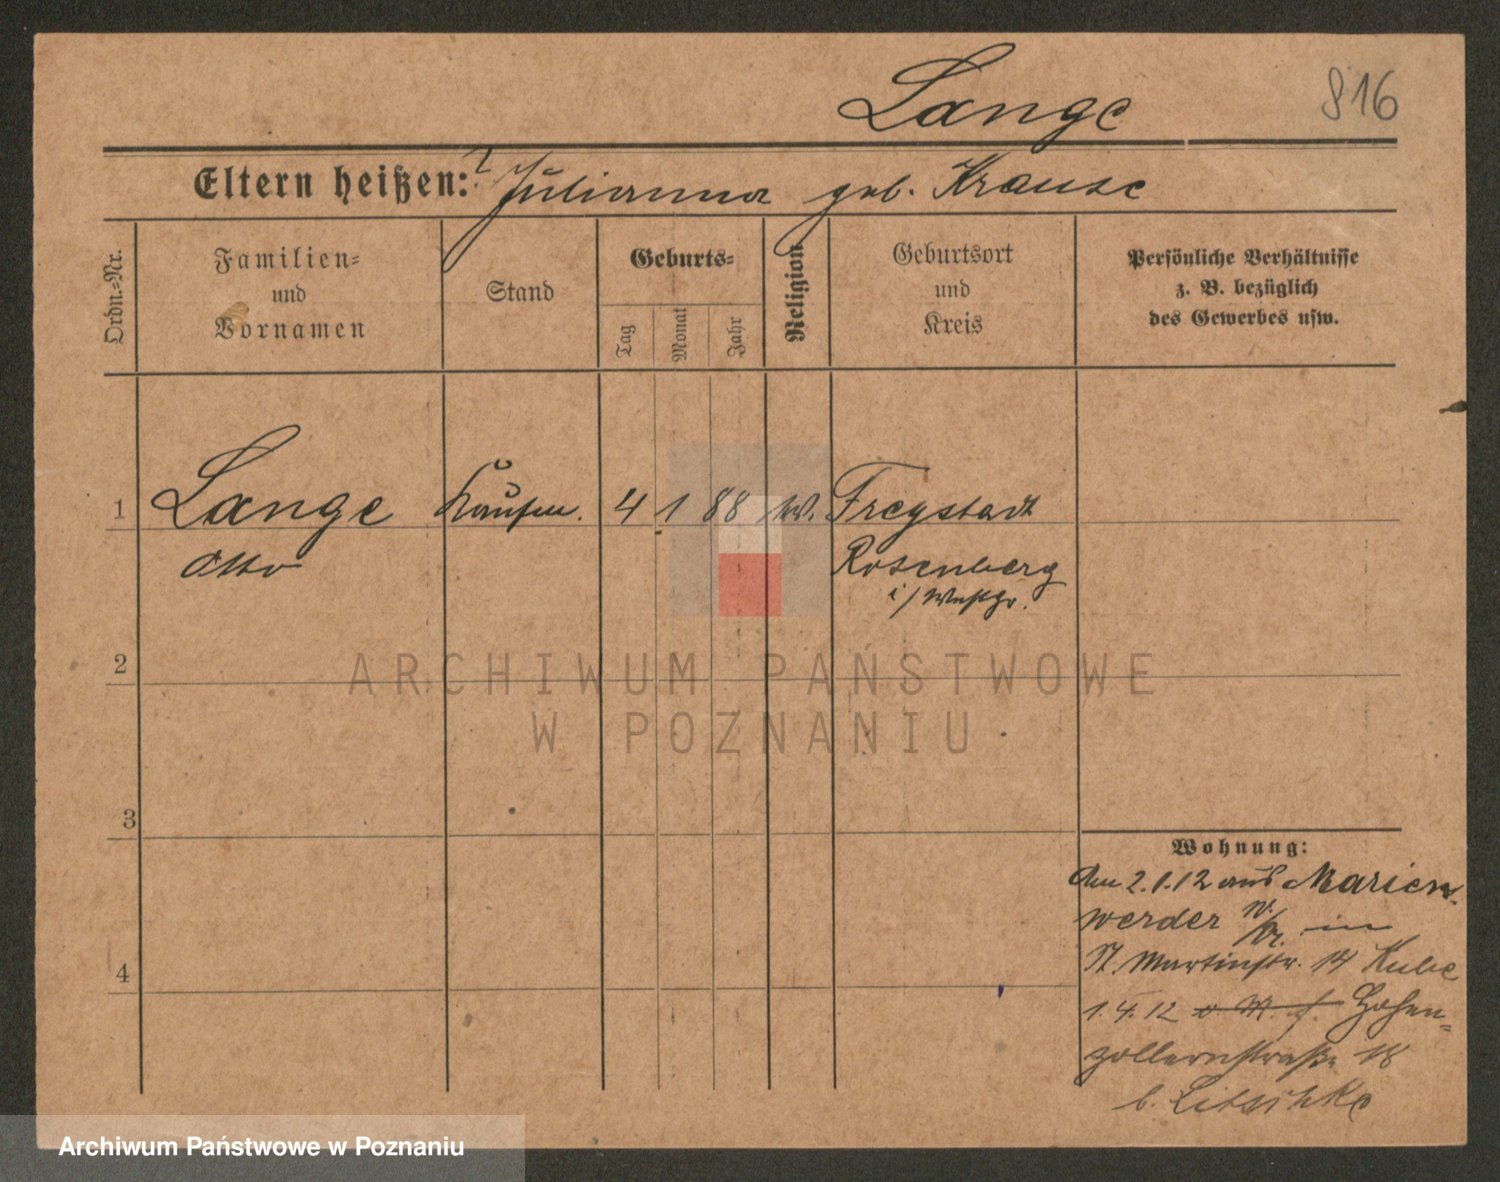 Lange
816
Eltern heißen: ? Julianna geb. Krause
Ordn.-Nr.
Familien-
und
Vornamen
Stand
Geburts-
Tag
Monat
Jahr
Religion
Geburtsort
und
Kreis
Persönliche Verhältnisse
z. B. bezüglich
des Gewerbes usw.
1 Lange Kaufm. 4 1 88 Freystadt
Otto Rosenberg
i/Westpr.
2
ARCHIWUM PAŃSTWOWE
W POZNANIU
3
4
Wohnung:
2.1.12 aus Marien-
werder W./Pr. in
St. Martinstr. 14 Kube
1.4.12 Hohen=
zollernstraße 18
b.
Archiwum Państwowe w Poznaniu